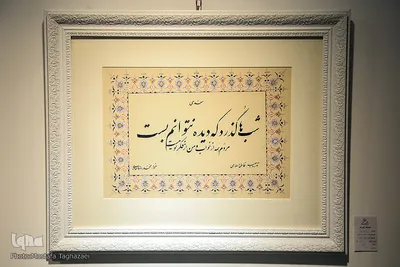 سعدی
شب‌ها گذرد که دیده نتوانم بست
مردم همه از خواب و من از فکر تو مست
iqna
Photo:Mostafa Taghazaei